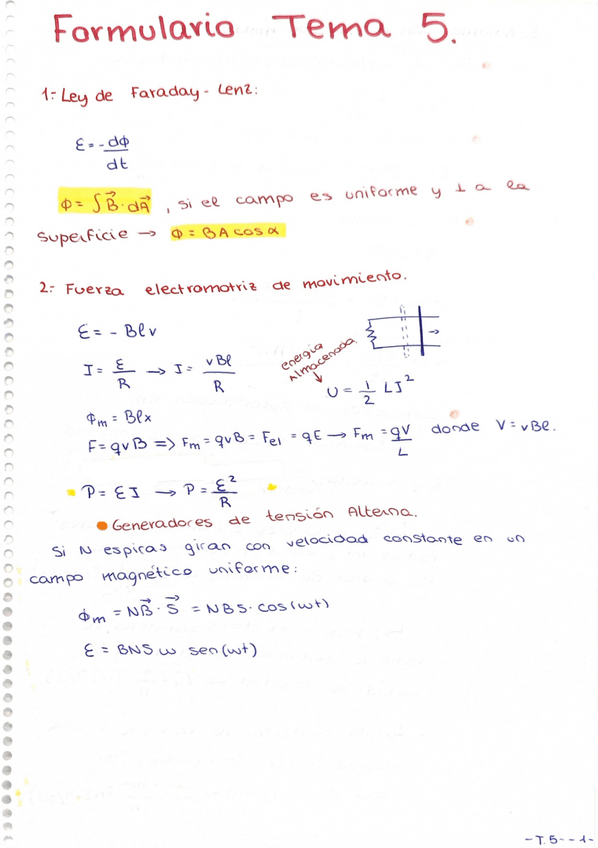 Formulario Tema 5.
1:- Ley de Faraday - Lenz:
ε = - dϕ/dt
ϕ = ∫ B⃗ · dA⃗ , si el campo es uniforme y ⊥ a la
superficie → ϕ = B A cos α
2:- Fuerza electromotriz de movimiento.
ε = - Bℓv
I = ε/R → I = vBℓ/R
energía
Almacenada
U = 1/2 LI²
ϕm = Bℓx
F = qvB => Fm = qvB = Fel = qE → Fm = qV/L donde V = vBℓ.
P = εI → P = ε²/R
Generadores de tensión Alterna.
Si N espiras giran con velocidad constante en un
campo magnético uniforme:
ϕm = NB⃗ · S⃗ = NBS · cos(wt)
ε = BNS w sen(wt)
- T.5 - - 1 -